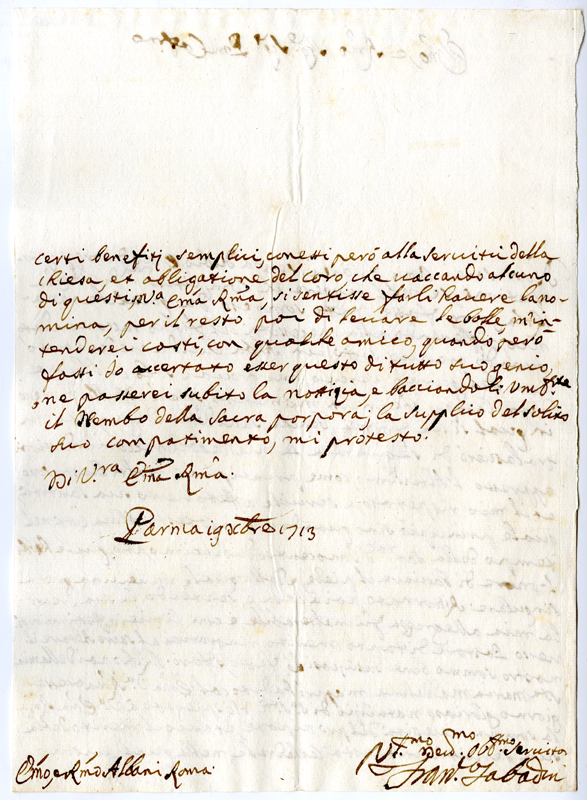 certi benefitj semplici, conessi però alla servitù della
chiesa, et obligatione del coro, che vaccando alcuno
di questi, V.ra Em̃a Rm̃a, si sentisse farli havere la no-
mina, per il resto poi di levare le bolle m'in-
tenderei costì, con qualche amico, quando però
fossi so accertato esser questo di tutto suo genio,
ne passerei subito la nottitia, e bacciandoli Um.te
il Nembo della sacra porpora; la supplico del solito
suo compatimento, mi protesto.
Di V.ra Em̃a Rm̃a.
Parma 19 Xbre 1713
Um.mo Dev.mo Obb.mo Servitor
Fran.
Em̃o, e Rm̃o Albani Roma.